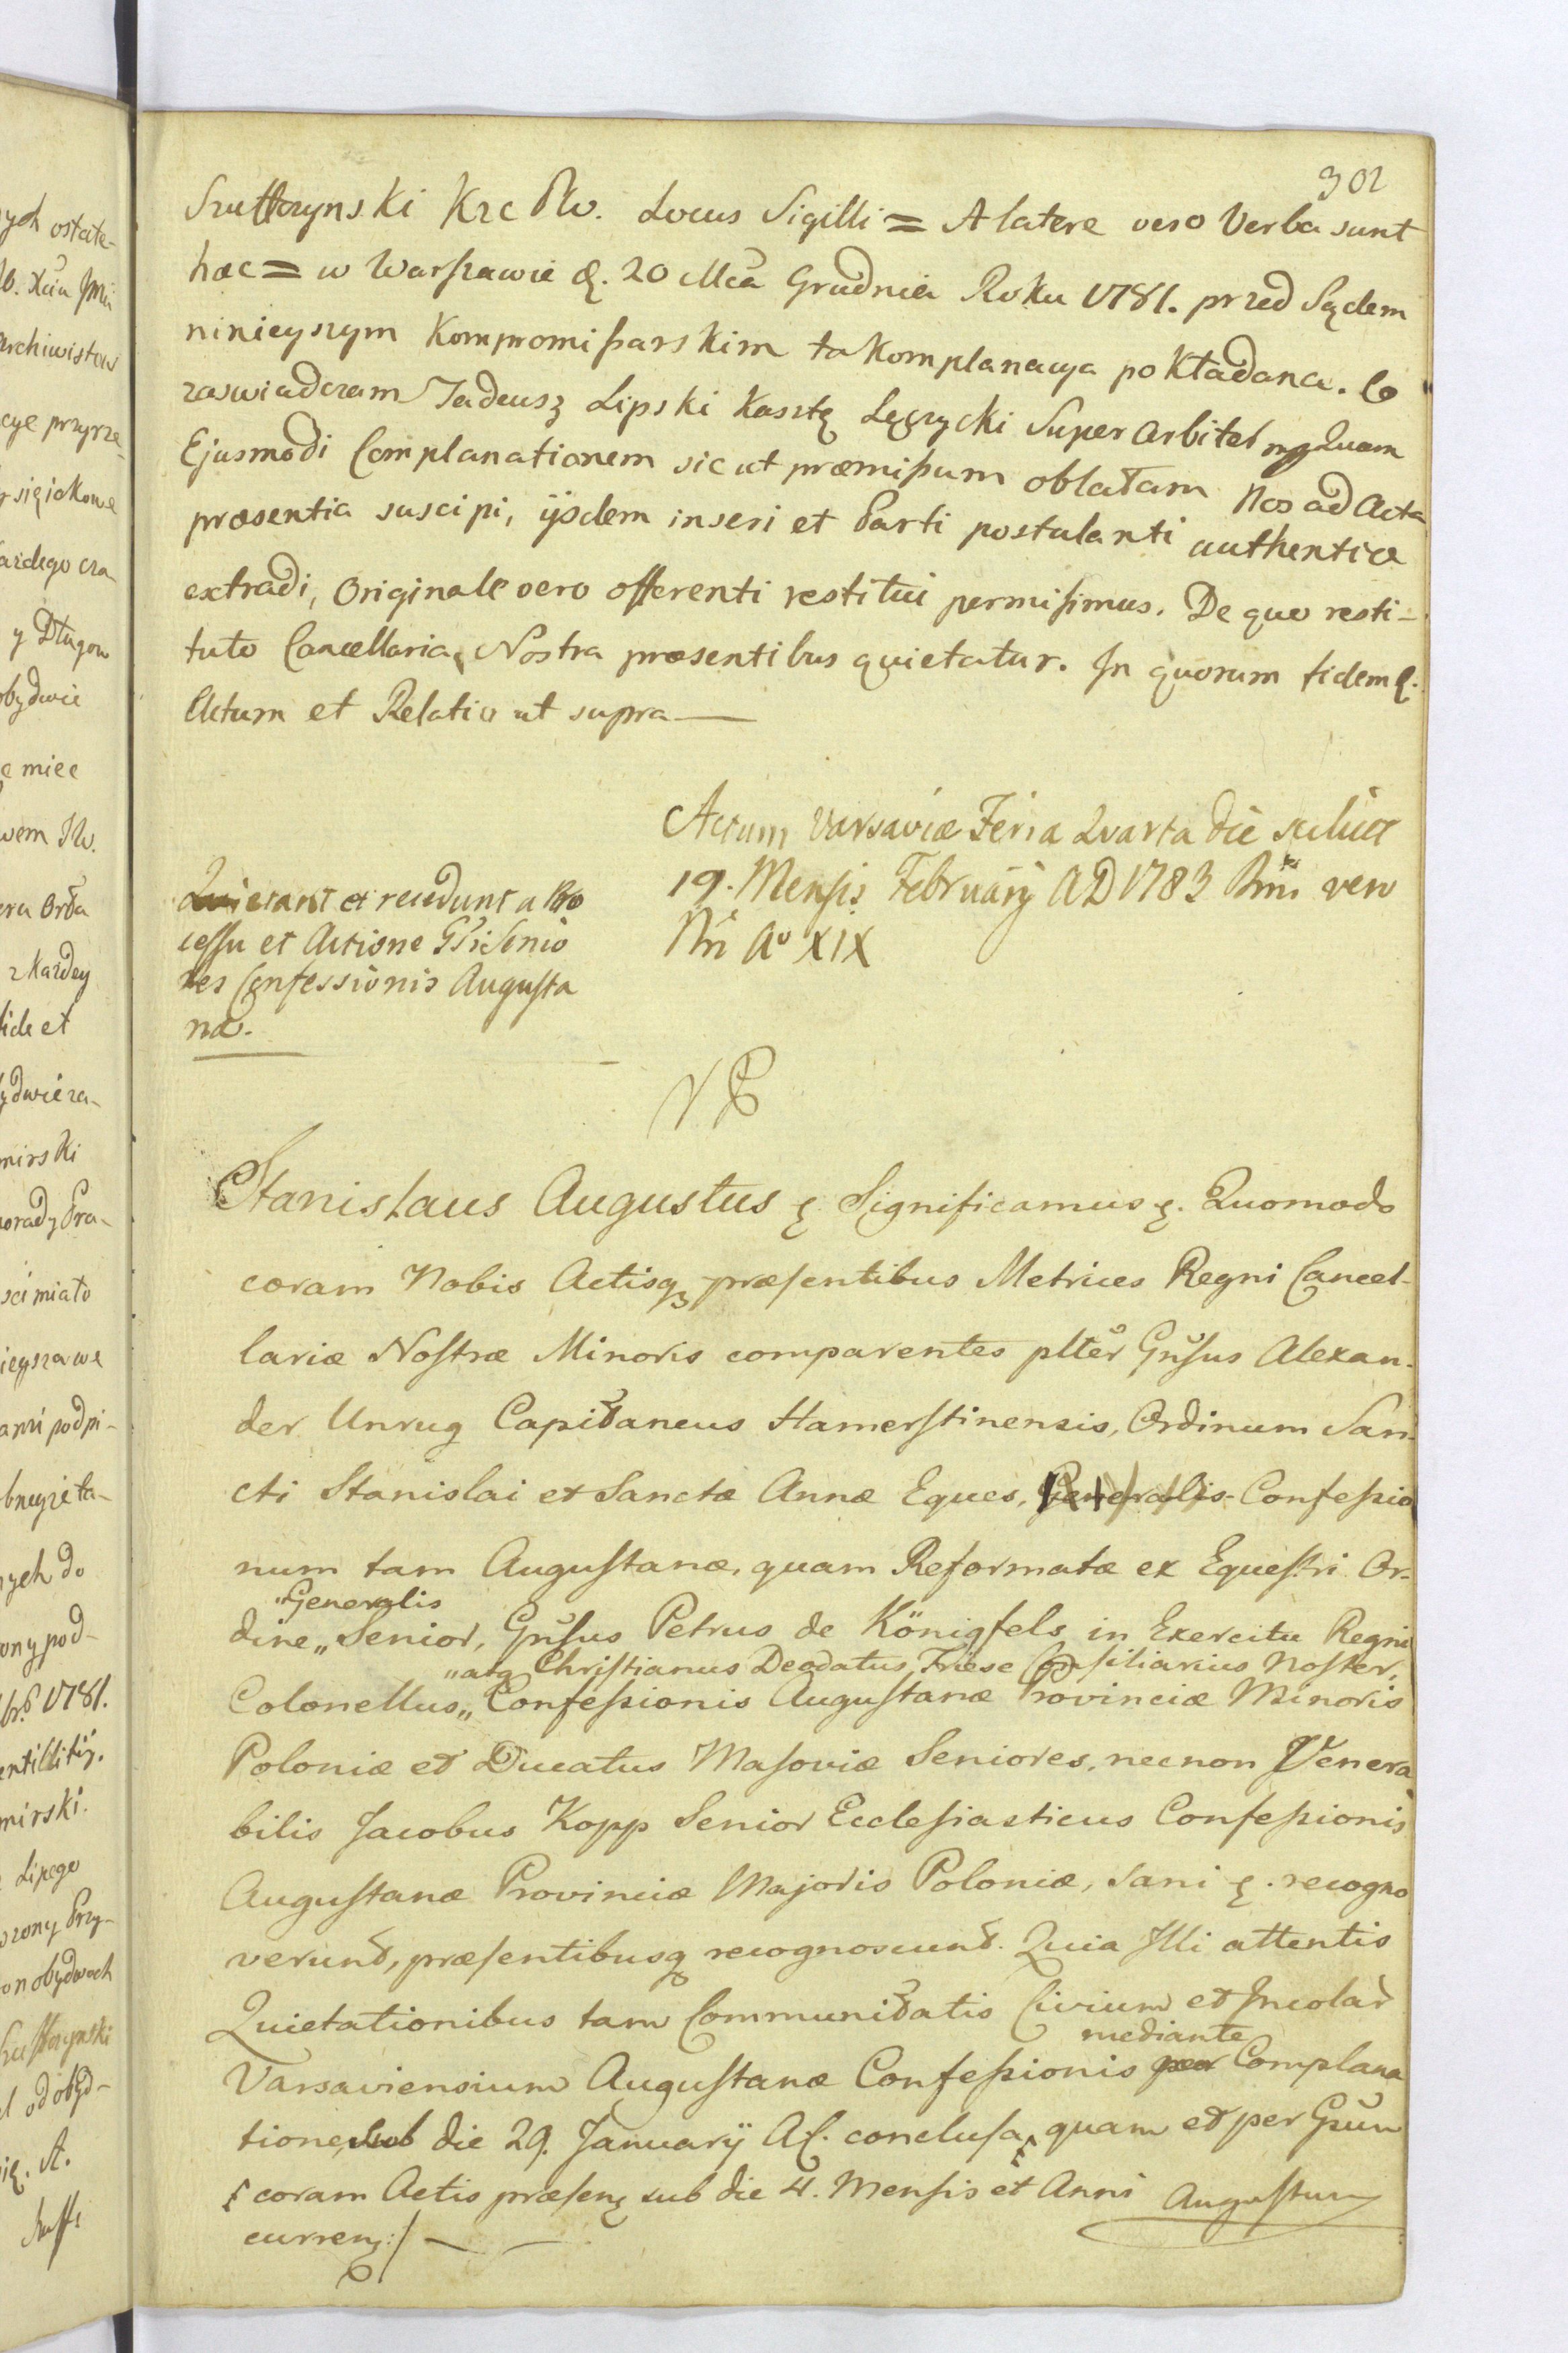 302
Szuttrzynski Krc Plv. Locus Sigilli = A latere vero Verba sunt
haec = w Warszawie d. 20 Mca Grudnia Roku 1781. przed Sądem
ninieyszym Kompromissarskim ta Komplanacya pokładana. Co
zaswiadczam Tadeusz Lipski Kasztę Łęczycki Super Arbiter Quam
Ejusmodi Complanationem sic ut praemissum oblatam Nos ad Acta
praesentia suscipi, ijsdem inseri et Parti postulanti authentice
extradi, Originale vero offerenti restitui permisimus. De quo resti-
tuto Cancellaria Nostra praesentibus quietatur. In quorum fidem &.
Actum et Relatio ut supra —
Actum Varsaviae Feria Quarta die scilicet
19. Mensis Februarij AD 1783 Rni vero
Nri Ao XIX
Quietant et recedunt a Pro
cessu et Actione Gsi Senio
res Confessionis Augusta
nae.
Stanislaus Augustus &. Significamus &. Quomodo
coram Nobis Actisq praesentibus Metrices Regni Cancel-
lariae Nostrae Minoris comparentes plter Gnsus Alexan-
der Unrug Capitaneus Hamerstinensis, Ordinum San-
cti Stanislai et Sanctae Annae Eques, Generalis Confessio
num tam Augustanae, quam Reformatae ex Equestri Or-
„Generalis
dine „ Senior, Gnsus Petrus de Königfels in Exercitu Regni
„atq Christianus Deodatus Friese Consiliarius Noster,
Colonellus „ Confessionis Augustanae Provinciae Minoris
Poloniae et Ducatus Masoviae Seniores, necnon Venera
bilis Jacobus Kopp Senior Ecclesiasticus Confessionis
Augustanae Provinciae Majoris Poloniae, sani &. recogno
verunt, praesentibusq recognoscunt. Quia Illi attentis
Quietationibus tam Communitatis Civium et Incolar
mediante
Varsaviensium Augustanae Confessionis per Complana
tione sub die 29. Januarij AC. conclusa, quam et per Gsum
coram Actis praesen sub die 4. Mensis et Anni Augustum
curren:/